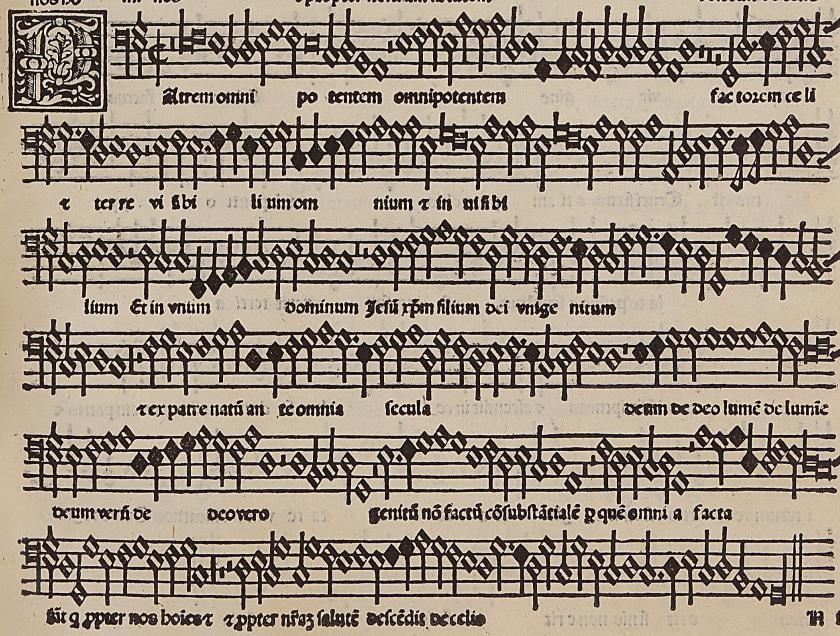 Patrem omni po tentem omnipotentem fac torem ce li
⁊ ter re vi sibi li um om nium ⁊ in uisibi
lium Et in vnum dominum Jesū xp̄m filium dei vnige nitum
⁊ ex patre natū an te omnia secula deum de deo lumē de lumīe
deum verū de deo vero genitū nō factū cōsubstātialē ꝑ quē omni a facta
sūt q ꝓpter nos hoīes ⁊ ⁊ ꝓpter nr̄aꝫ salutē descēdit de celis